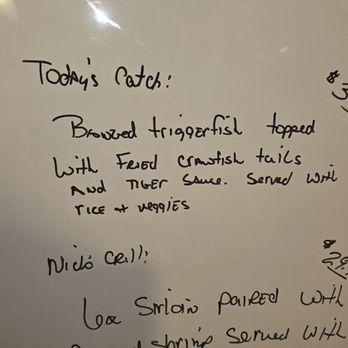 Today's Catch:
$
Bronzed triggerfish topped
With Fried crawfish tails
And Tiger Sauce. Served With
rice + veggies
Nick's Grill:
$
6oz Sirloin Paired With
shrimp Served With